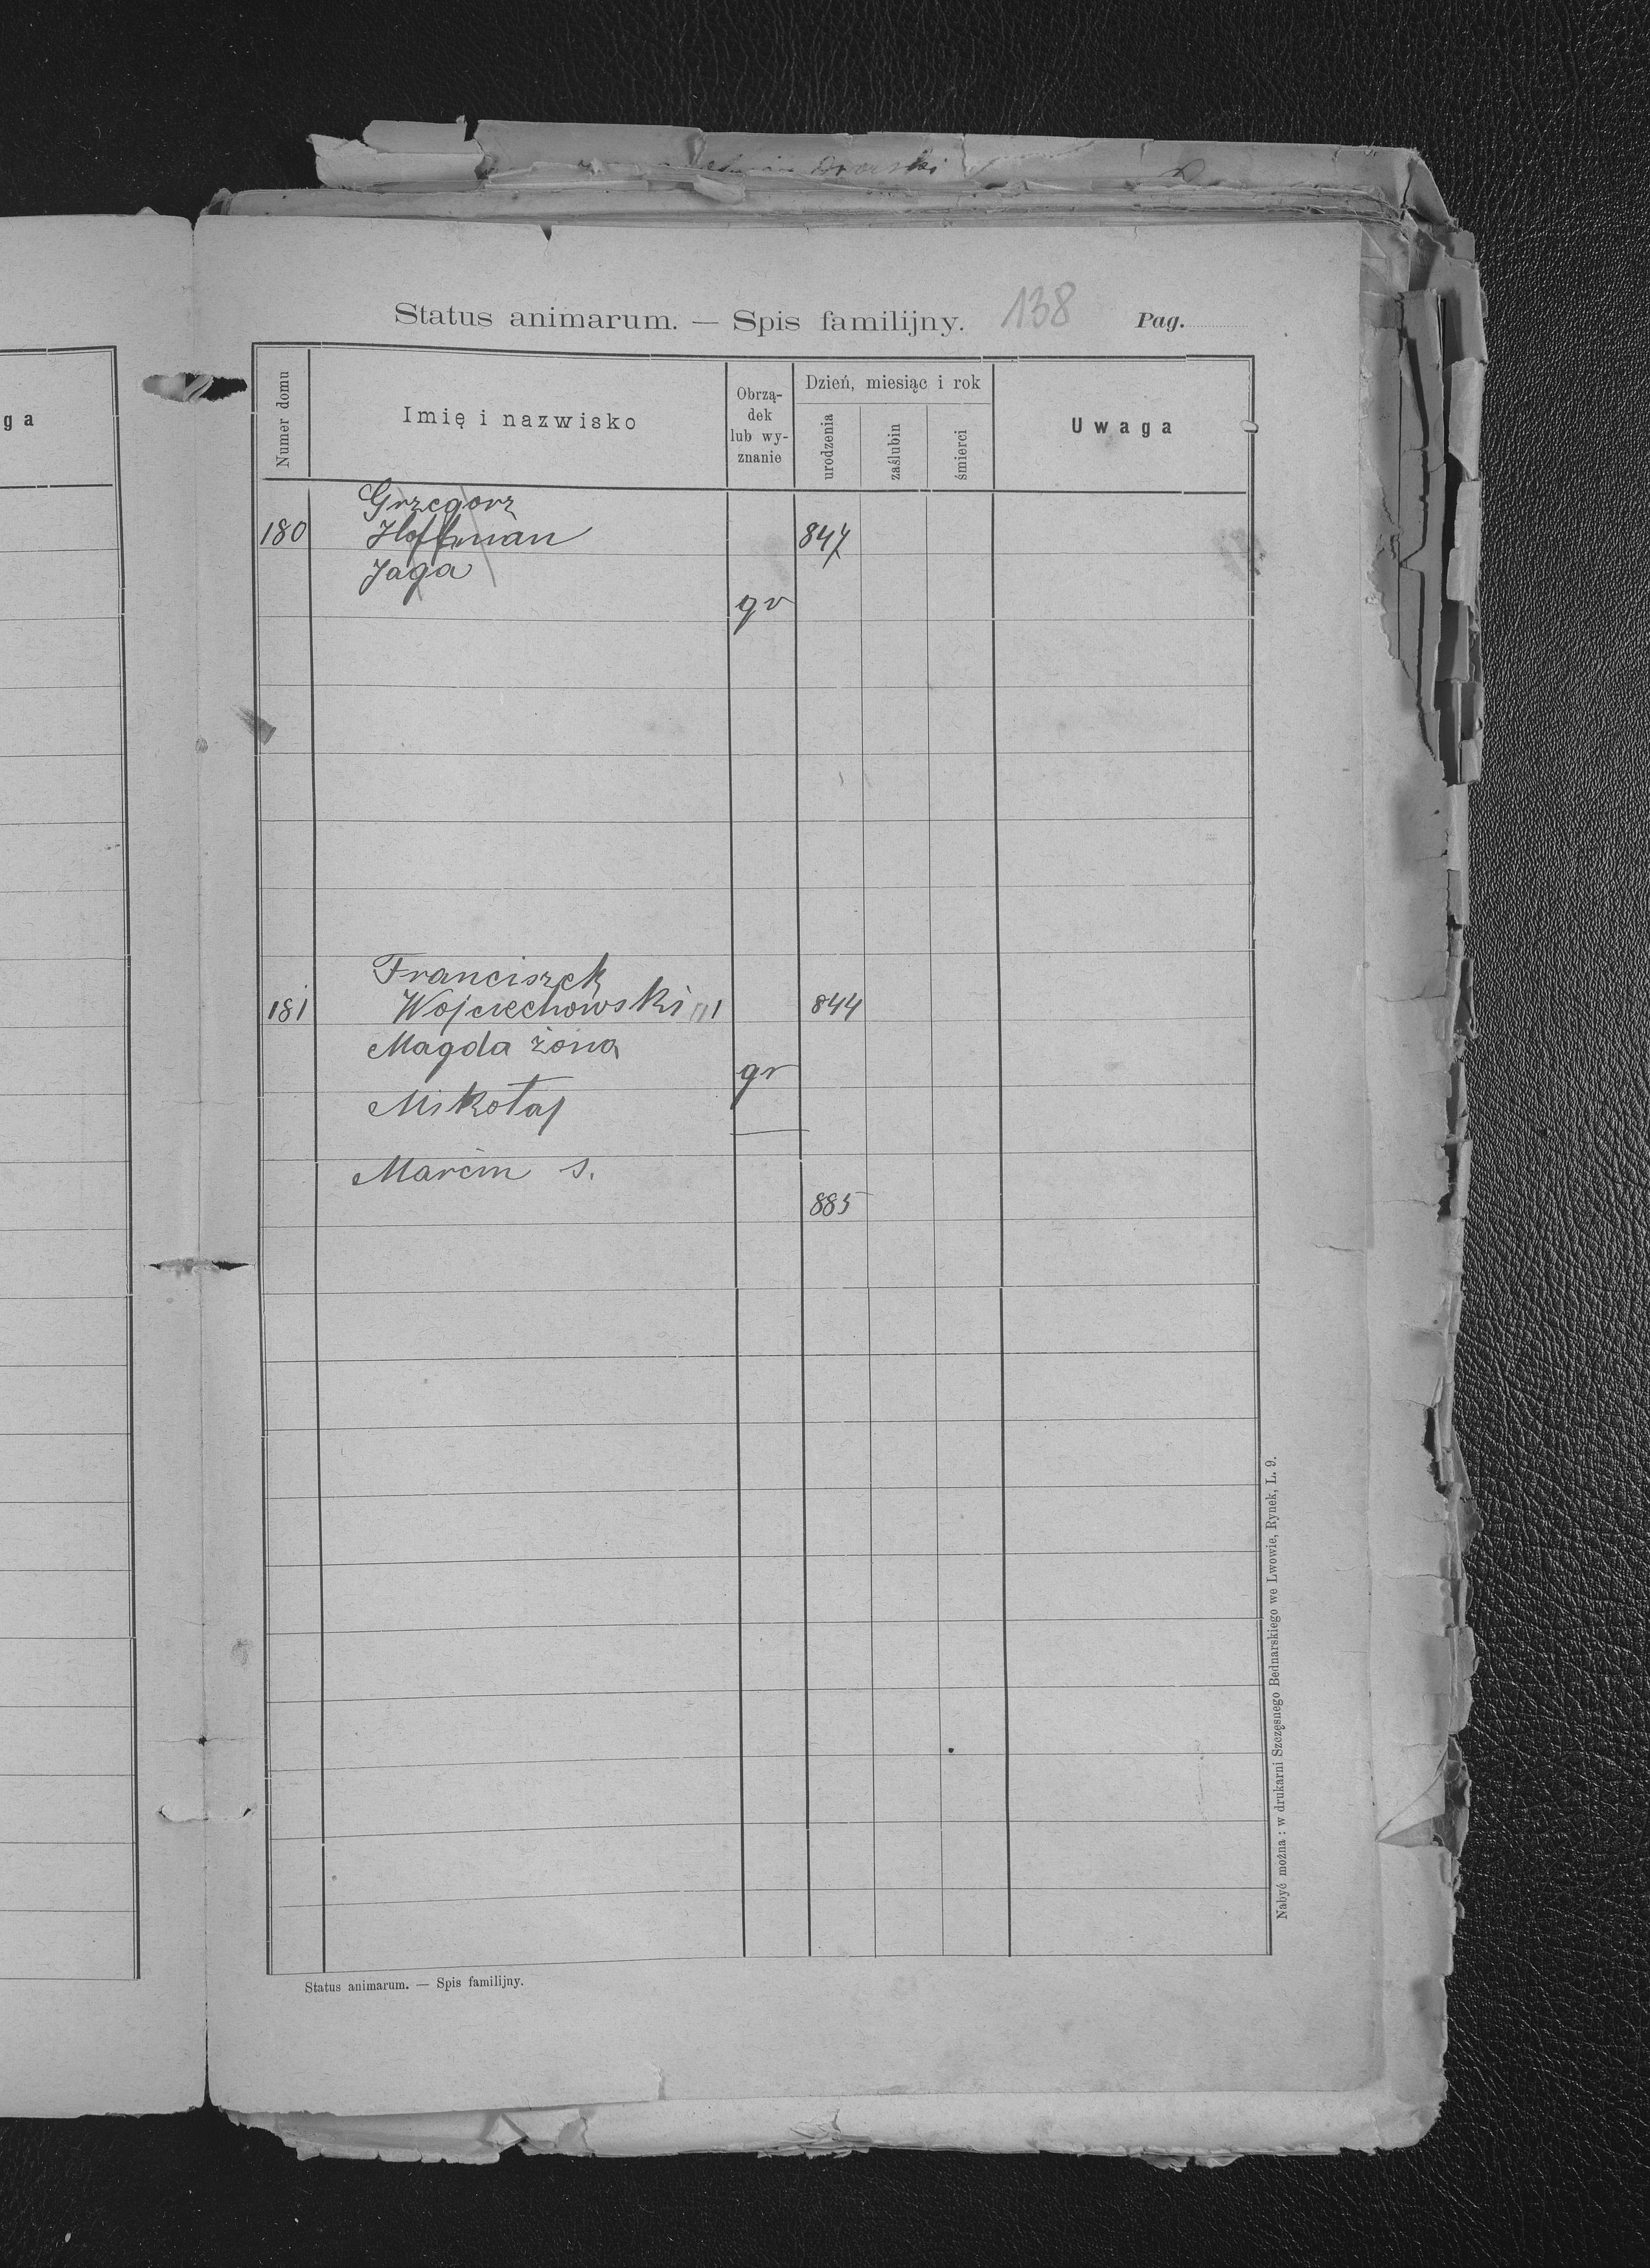 Dworski
Status animarum. — Spis familijny. 138 Pag.
ga
Numer domu
Imię i nazwisko
Obrzą-
dek
lub wy-
znanie
Dzień, miesiąc i rok
urodzenia
zaślubin
śmierci
Uwaga
Grzegorz
180 Hoffman 847
Jaga
gr
Franciszek
181 Wojciechowski 844
Magda żona
gr
Mikołaj
Marcin s.
885
Nabyć można: w drukarni Szczęsnego Bednarskiego we Lwowie, Rynek, L. 9.
Status animarum. — Spis familijny.